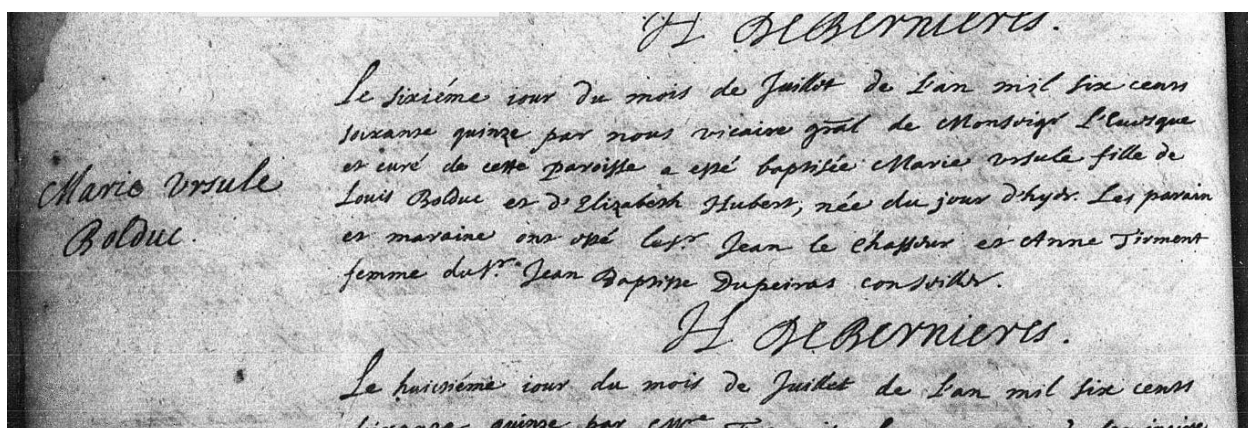 H DeBernieres.
Le sixiéme iour du mois de Juillet de L'an mil six cens
soixante quinze par nous vicaire gñal de Monseigr L'Euesque
et curé de cette paroisse a esté baptisée Marie Vrsule fille de
Louis Bolduc et d'Elizabeth Hubert, née du jour d'hyer. Les parain
et maraine ont esté le Sr. Jean le Chasseur et Anne Tirment
femme du Sr. Jean Baptiste Dupeiras conseiller.
Marie Vrsule
Bolduc.
H DeBernieres.
Le huictiéme iour du mois de Juillet de L'an mil six cens
soixante quinze par Mre